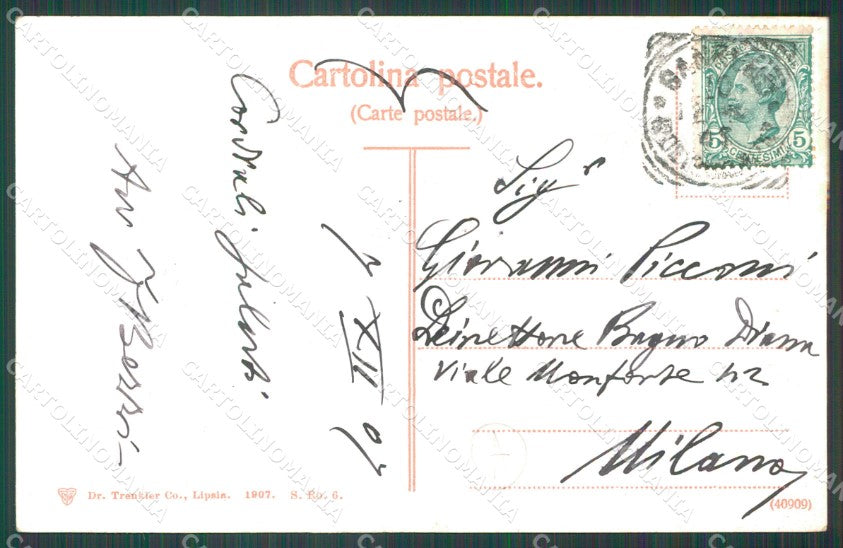 Cartolina postale.
(Carte postale.)
Sigr
Giovanni Picconi
Direttore Bagno Diana
Viale Monforte 42
Milano
Cordiali saluti
7 XII 07
5 5
CENTESIMI
Dr. Trenkler Co., Lipsia. 1907. S. Ro. 6.
(40909)
CARTOLINOMANIA